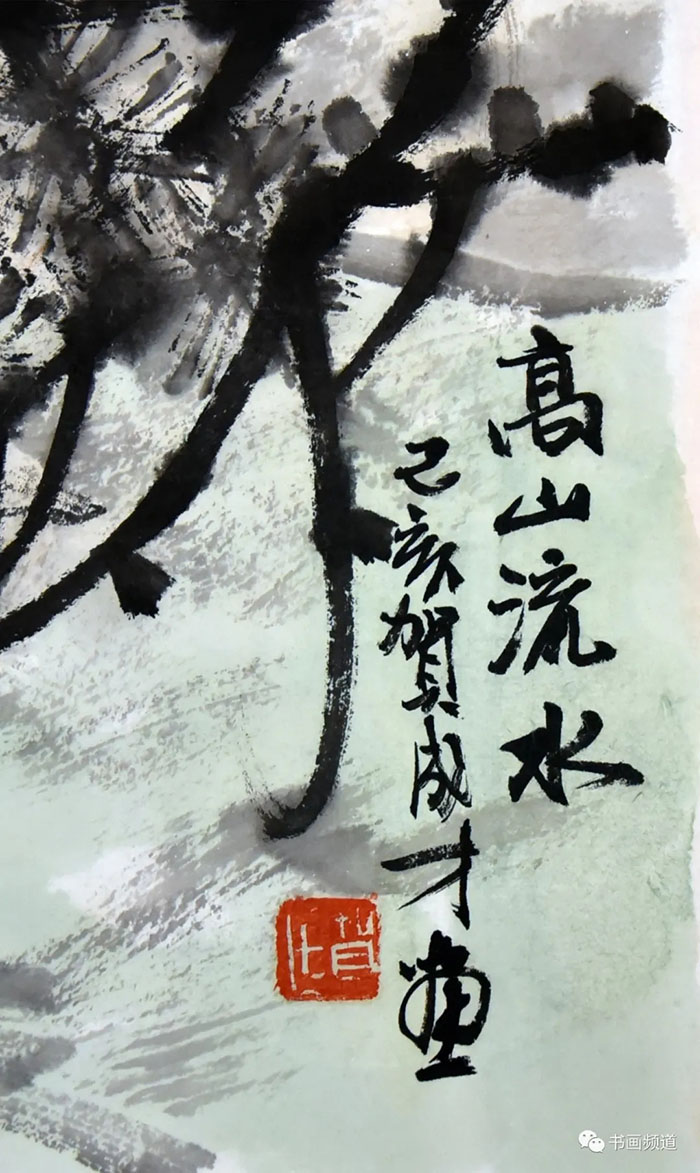 高山流水
己亥賀成才画
书画频道